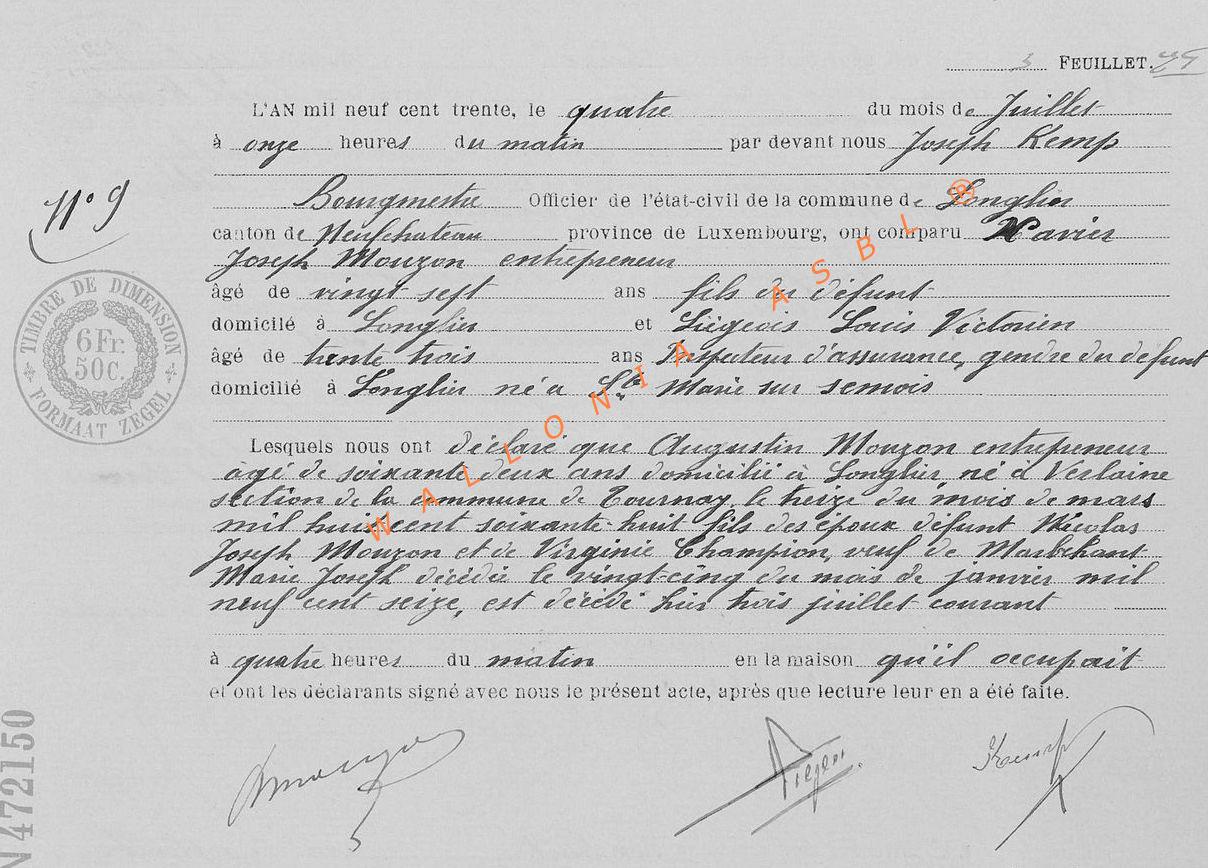 3 FEUILLET. 25
L'AN mil neuf cent trente, le quatre du mois de Juillet
à onze heures du matin par devant nous Joseph Kemp
Bourgmestre Officier de l'état-civil de la commune de Longlier
N° 9
canton de Neufchateau province de Luxembourg, ont comparu Xavier
Joseph Mouzon entrepreneur
âgé de vingt sept ans fils du défunt
domicilé à Longlier et Liégeois Louis Victorien
âgé de trente trois ans Inspecteur d'assurance, gendre du defunt
domicilié à Longlier né à Ste Marie sur semois
TIMBRE DE DIMENSION
6 Fr.
50 C.
FORMAAT ZEGEL
Lesquels nous ont déclaré que Augustin Mouzon entrepreneur
âgé de soixante deux ans domicilié à Longlier né à Verlaine
section de la commune de Tournay, le treize du mois de mars
mil huit cent soixante-huit fils des époux défunt Nicolas
Joseph Mouzon et de Virginie Champion, veuf de Marbehant
Marie Joseph décédée le vingt-cinq du mois de janvier mil
neuf cent seize, est décédé hier trois juillet courant
à quatre heures du matin en la maison qu'il occupait
et ont les déclarants signé avec nous le présent acte, après que lecture leur en a été faite.
Kemp
N 472150
WALLONIA ASBL ®